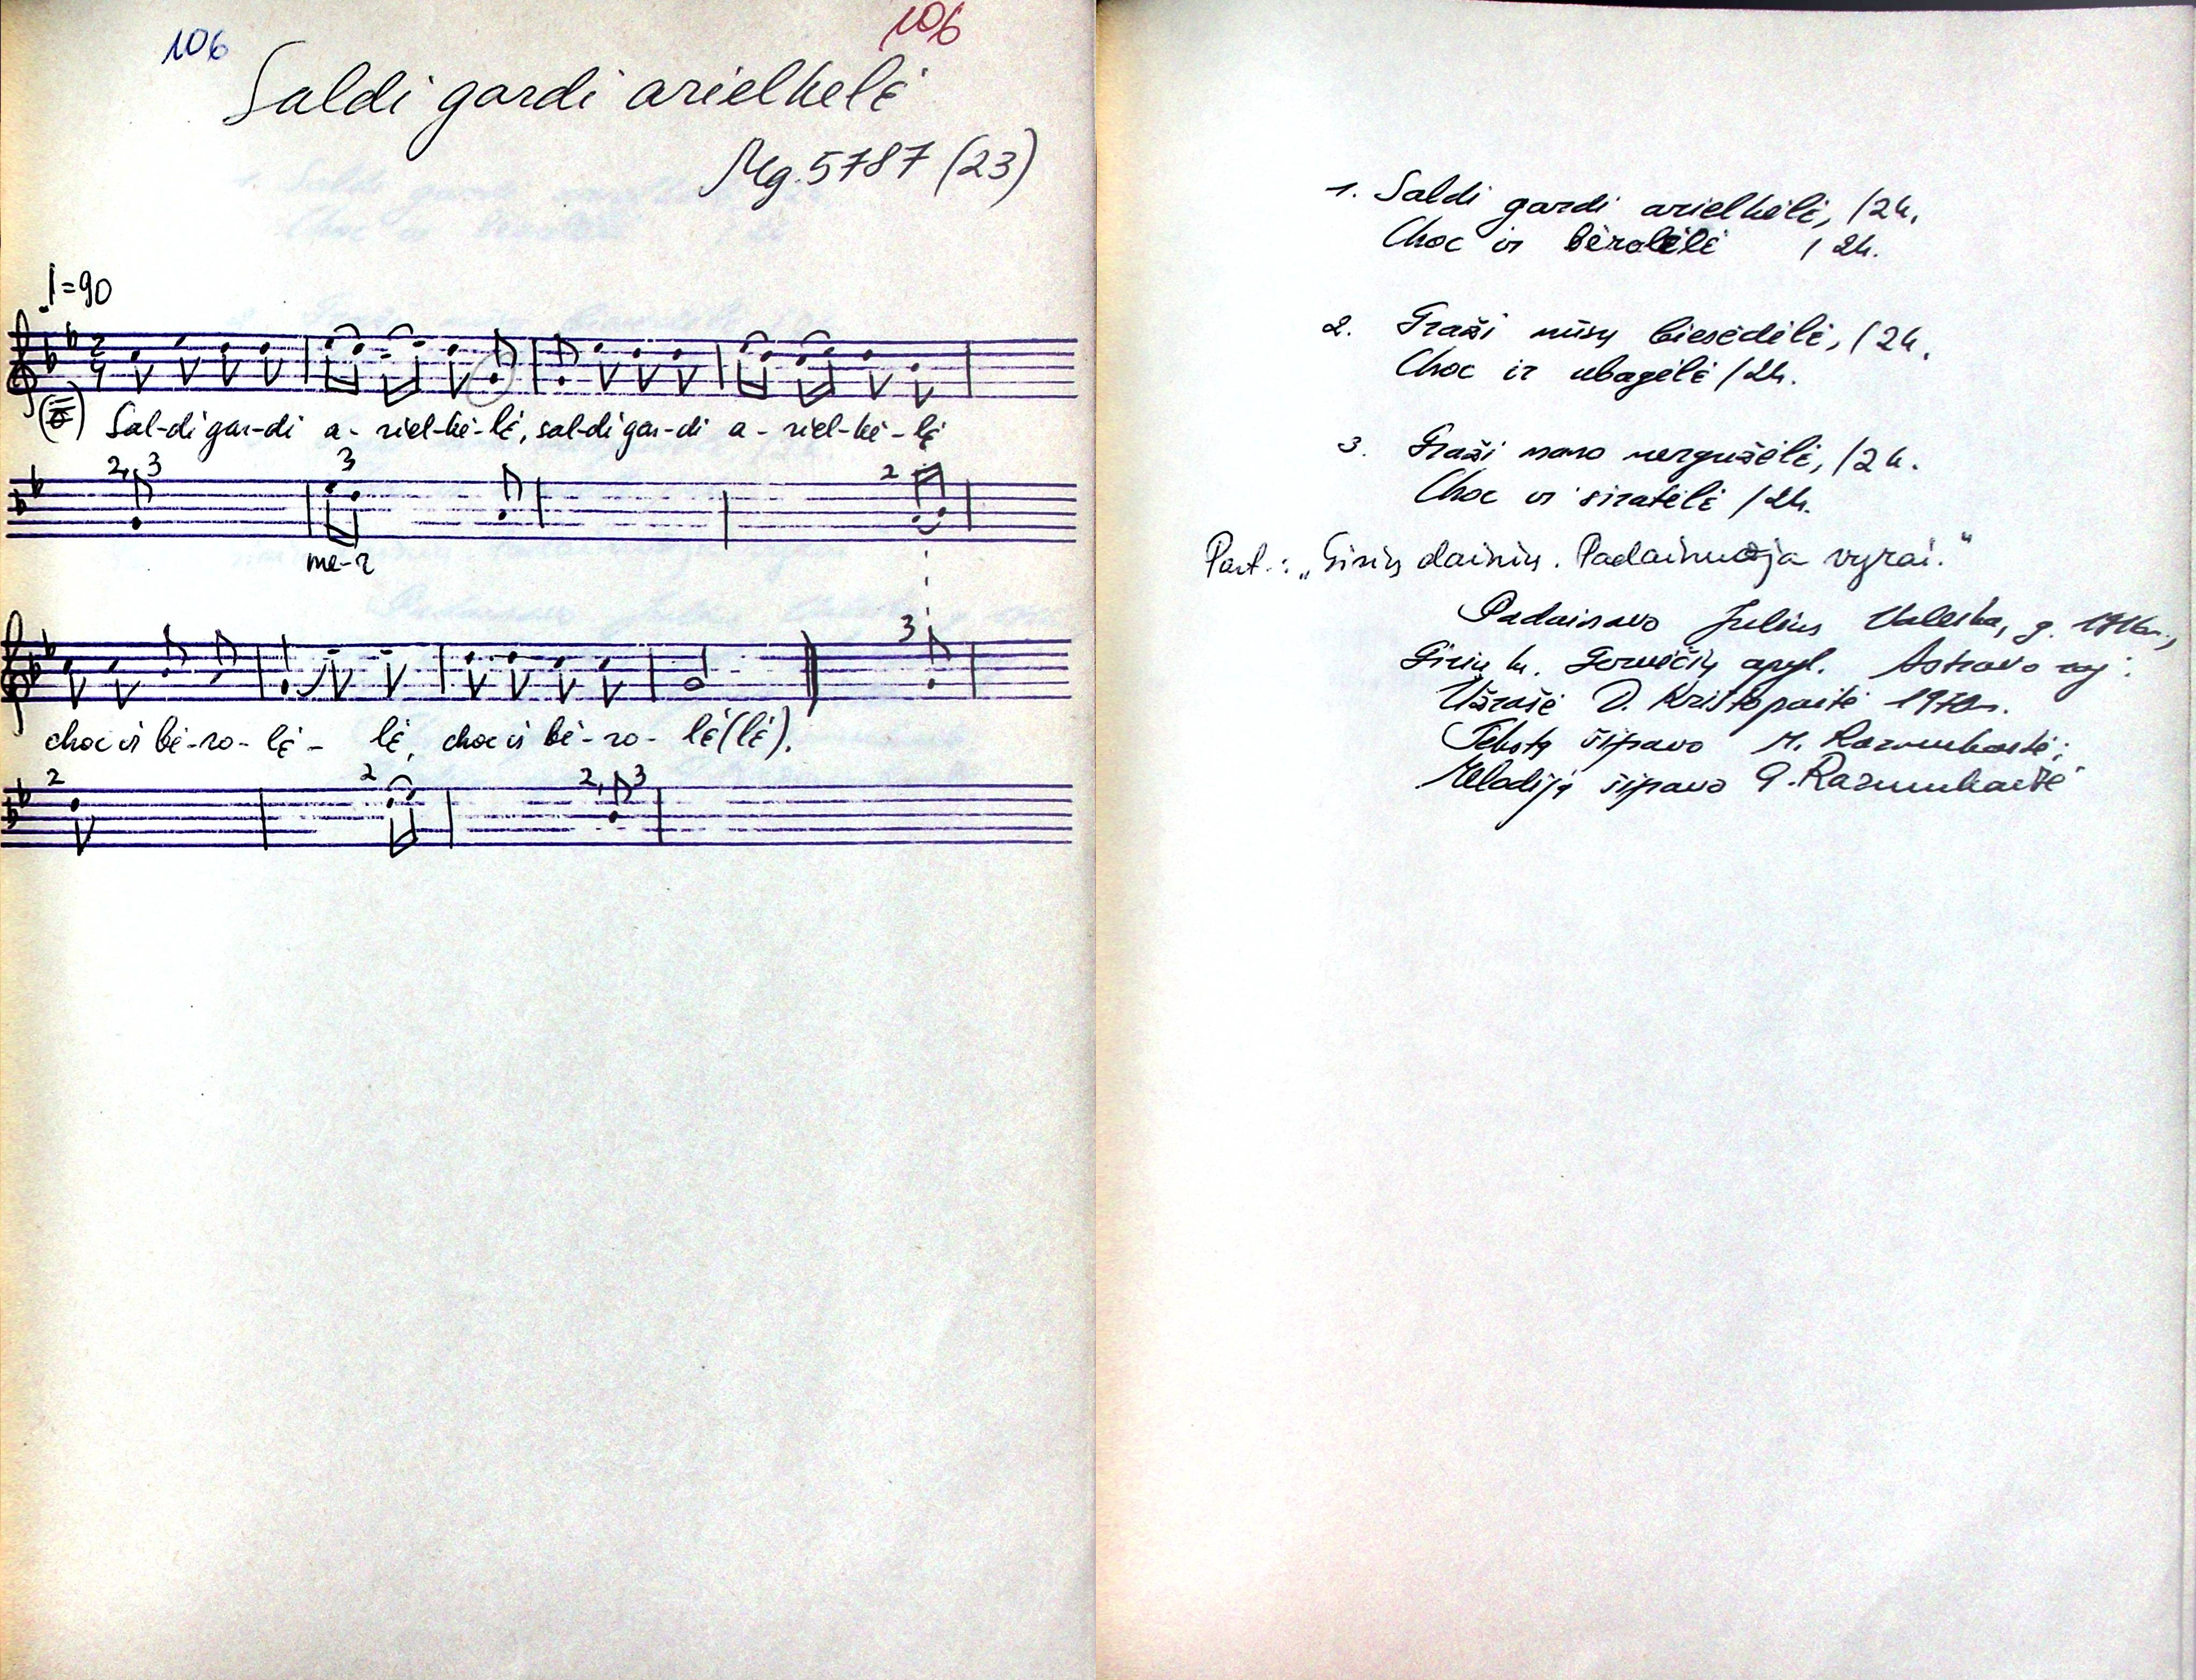 106
106
Saldi gardi arielkelė
Mg. 5787 (23)
♩=90
2
4
Sal-di gar-di a-riel-kė-lė, sal-di gar-di a-riel-kė-lė
2, 3
3
2
me-r
3
choc ir bė-ro-lė-lė, choc ir bė-ro-lė(lė).
2
2
2, 3
1. Saldi gardi arielkėlė, /2k.
Choc ir bėrolėlė /2k.
2. Graži mūsų biesėdėlė, /2k.
Choc ir ubagėlė /2k.
3. Graži mano mergužėlė, /2k.
Choc ir siratėlė /2k.
Past.: „Girių dainių. Padainuoja vyrai."
Padainavo Julius Valeika, g.
Girių k. Gervėčių apyl. Astravo raj.
Užrašė D. Krištopaitė 1970m.
Tekstą šifravo M. Razmukaitė;
Melodiją šifravo G. Razmukaitė